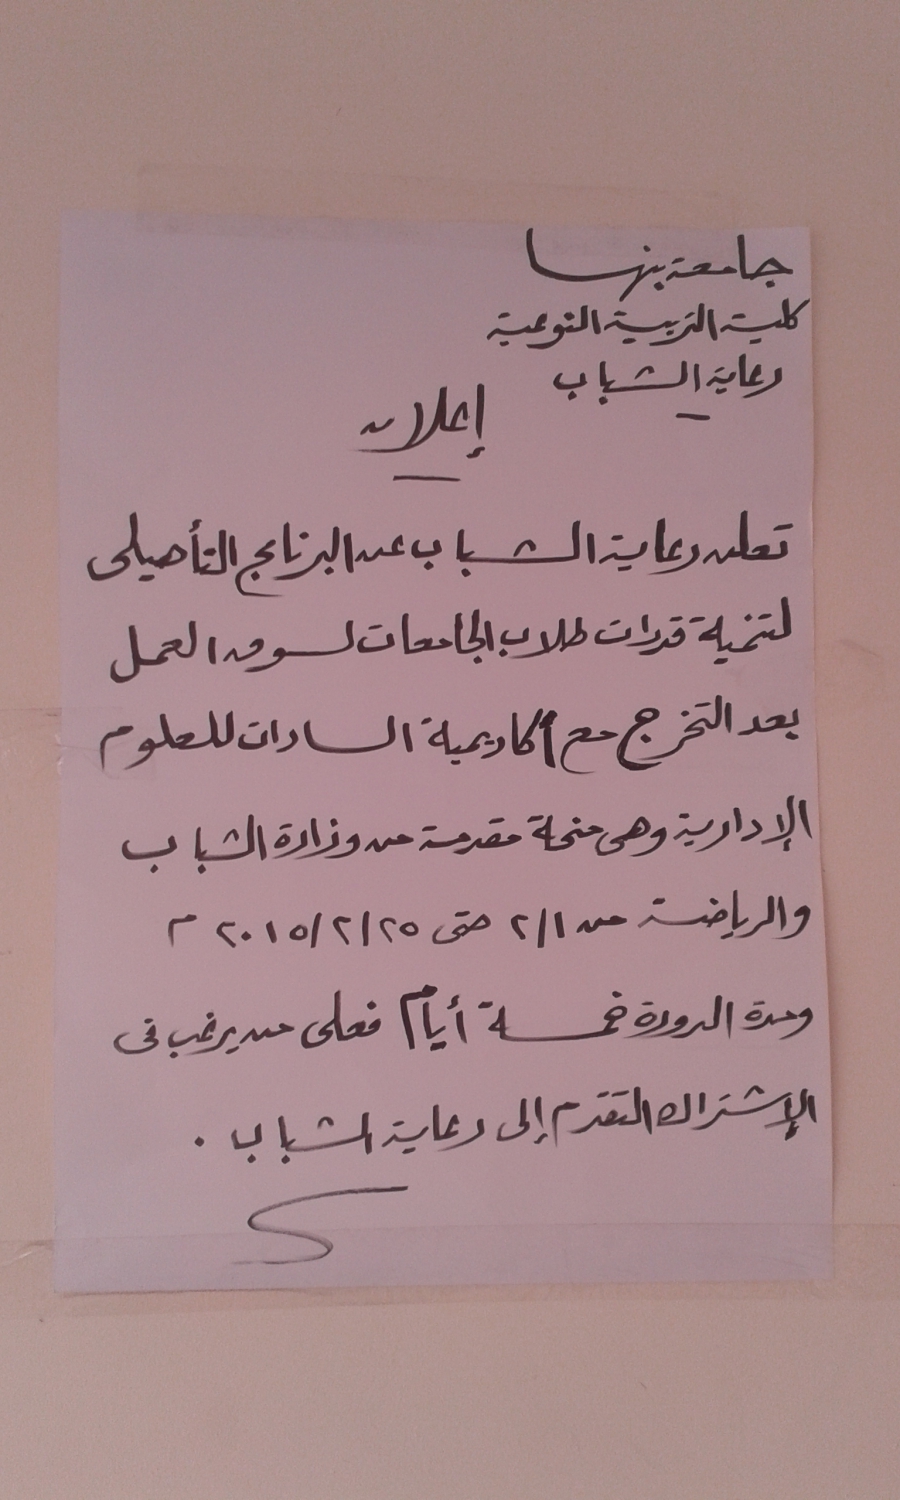 جامعة بنها
كلية التربية النوعية
رعاية الشباب
إعلان
تعلن رعاية الشباب عن البرنامج التأهيلى
لتنمية قدرات طلاب الجامعات لسوق العمل
بعد التخرج مع أكاديمية السادات للعلوم
الإدارية وهى منحة مقدمة من وزارة الشباب
والرياضة من ٢/١ حتى ٢٠١٥/٢/٢٥ م
ومدة الدورة خمسة أيام فعلى من يرغب فى
الإشتراك التقدم إلى رعاية الشباب .